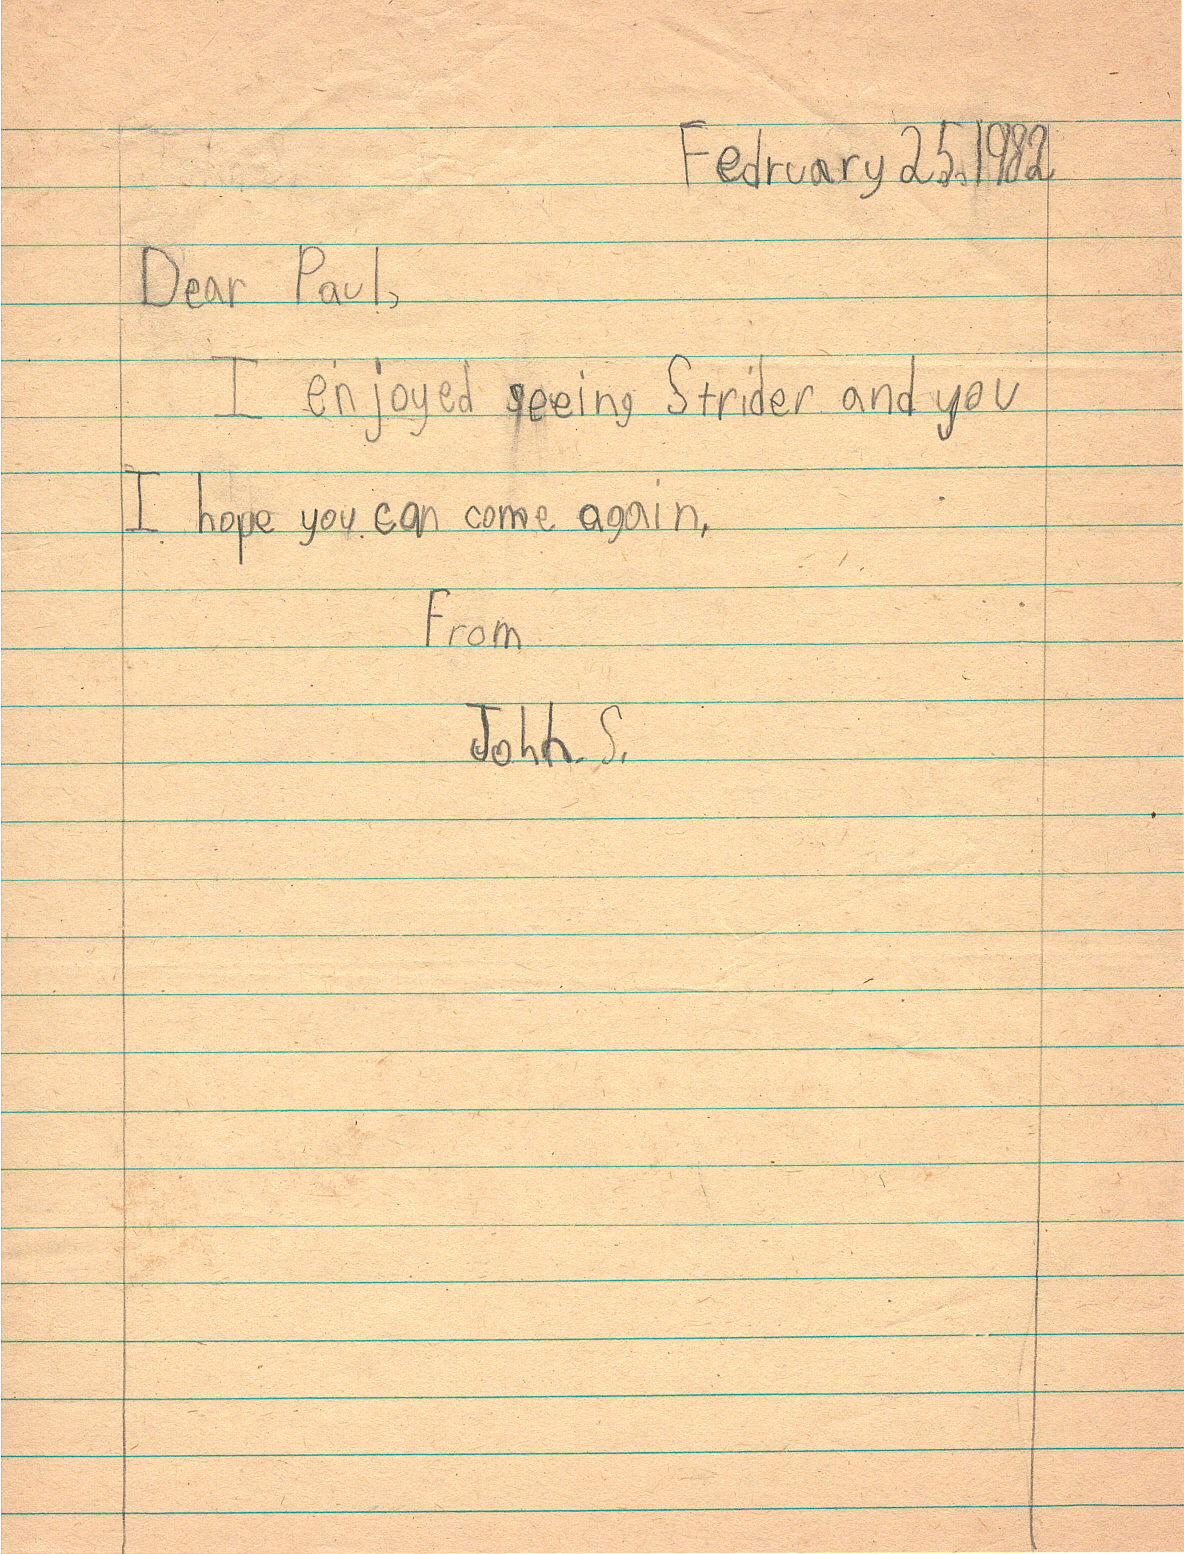 Fedruary 25, 1982
Dear Paul,
I enjoyed seeing Strider and you
I hope you can come again,
From
John. S.